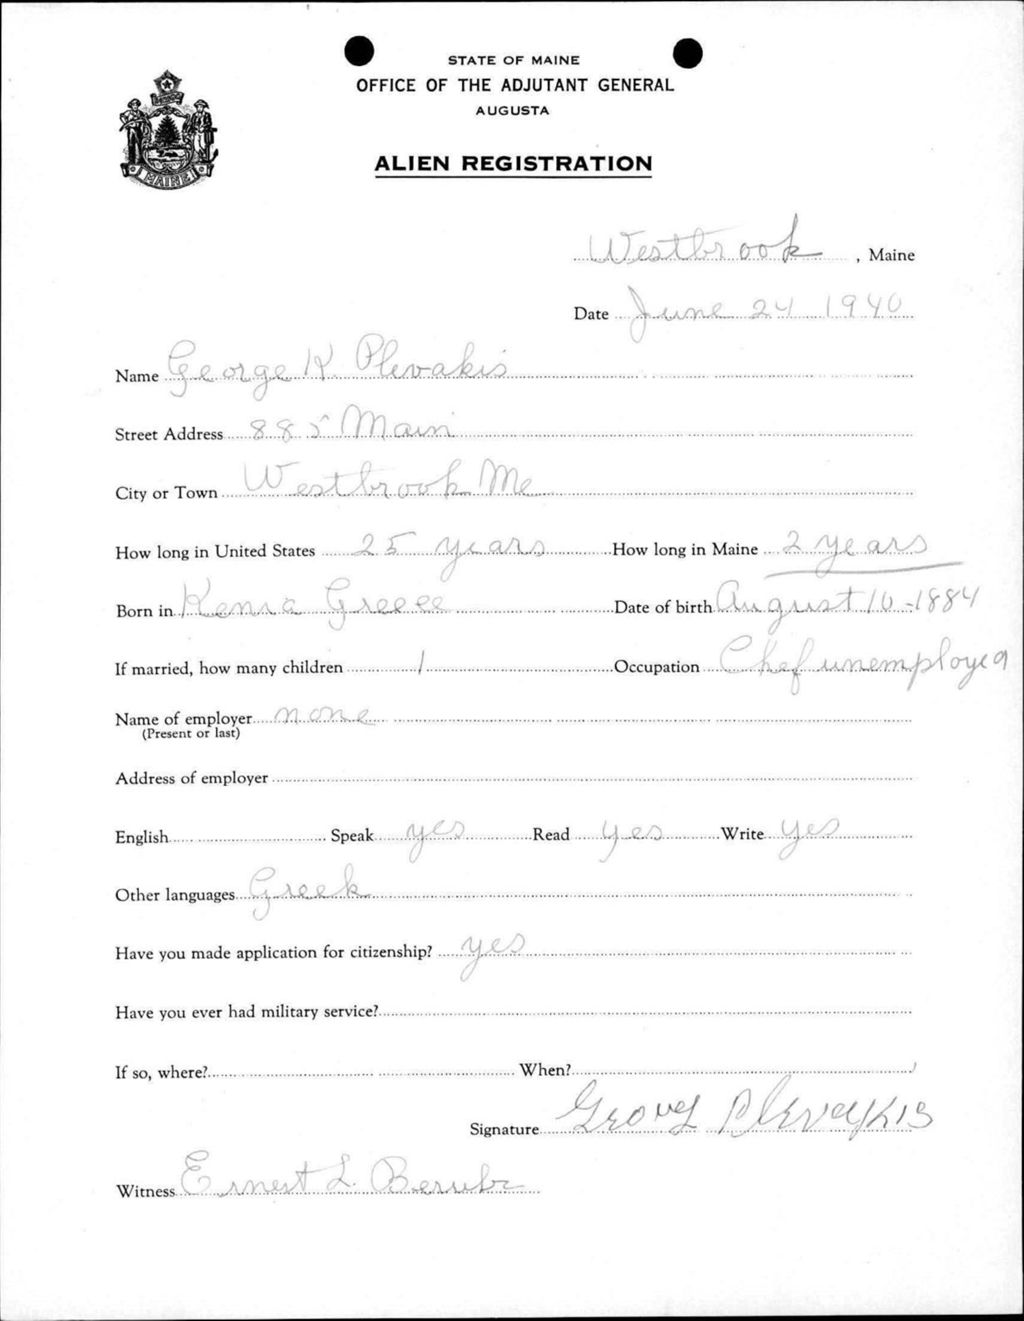 STATE OF MAINE
OFFICE OF THE ADJUTANT GENERAL
AUGUSTA
ALIEN REGISTRATION
MAINE
Westbrook, Maine
Date June 24 1940
Name George K Plevakis
Street Address 885 Main
City or Town Westbrook Me
How long in United States 25 years How long in Maine 2 years
Born in Greece Date of birth August 10-1884
If married, how many children 1 Occupation Chef unemployed
Name of employer none
(Present or last)
Address of employer
English Speak yes Read yes Write yes
Other languages Greek
Have you made application for citizenship? yes
Have you ever had military service?
If so, where? When?
Signature Georg Plevakis
Witness Ernest L. Berube